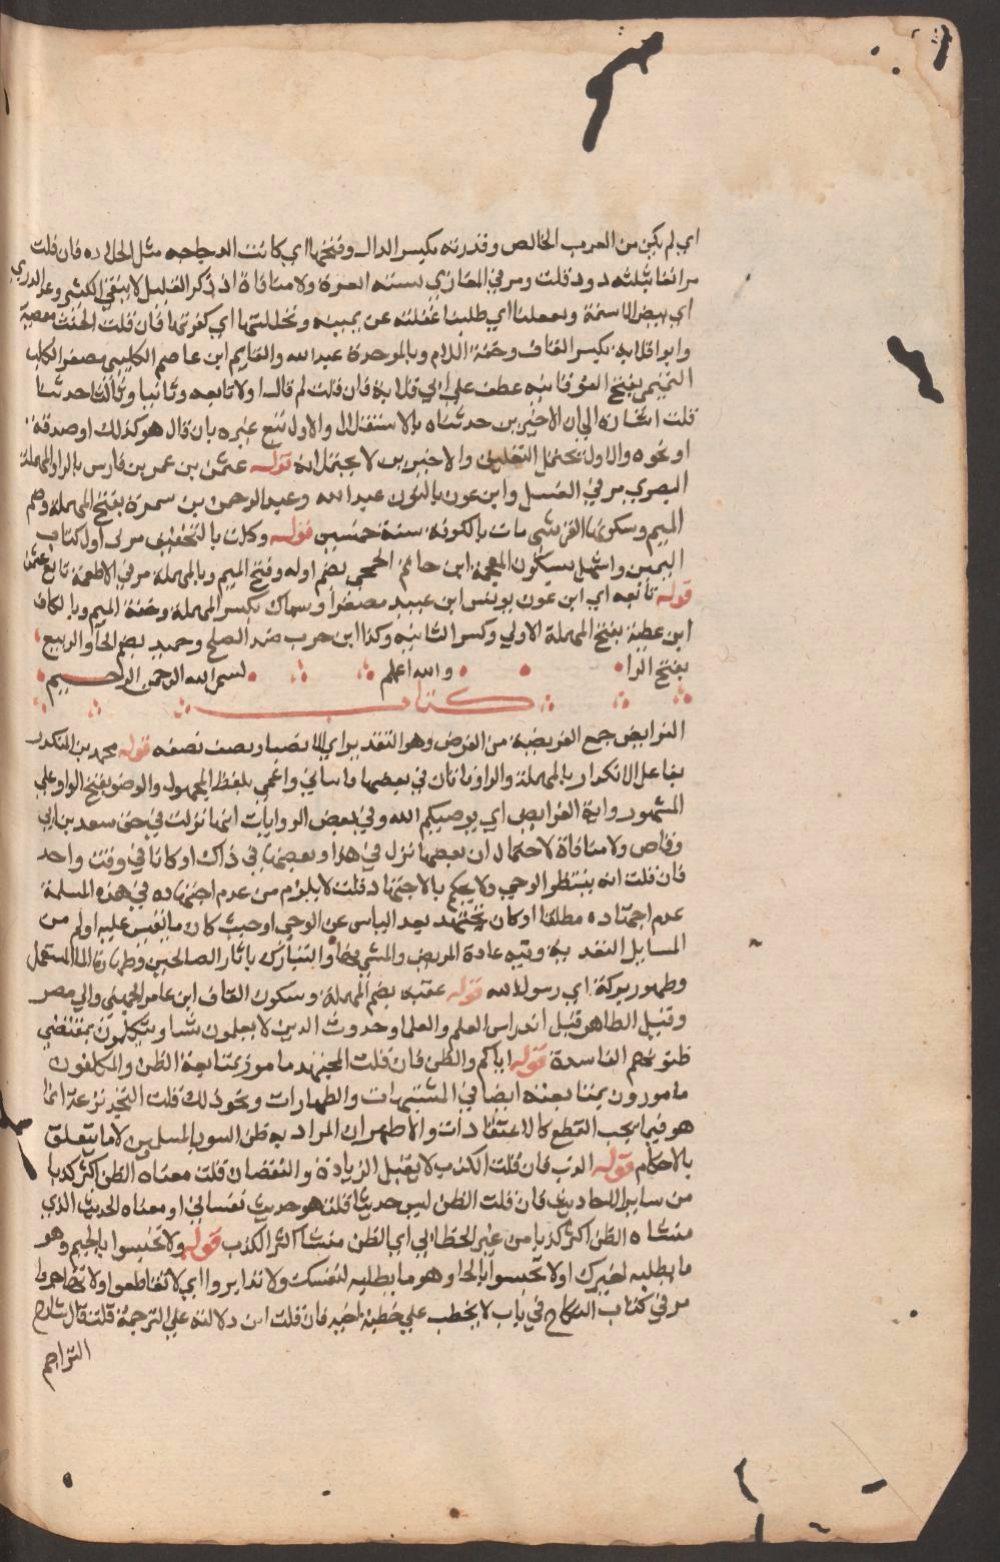 اي لم يكن من العرب الخالص وقذرته بكسر الذال وفتحها اي كانت الدجاجة مثل الجلالة فان قلت
مر انفا بثلثه ذود قلت ومر في المغازي بستة ابعرة ولا منافاة اذ ذكر القليل لا ينفي الكثير وغر الذري
اي بيض الاسنمة وتغفلنا اي طلبنا غفلته عن يمينه وتحللتها اي كفرتها فان قلت الحنث معصية
وابو قلابة بكسر القاف وخفة اللام وبالموحدة عبد الله والقاسم ابن عاصم الكليبي مصغر الكلب
التميمي بفتح الفوقانيه عطف علي ابي قلابة فان قلت لم قال اولا تابعه وثانيا وثالثا حدثنا
قلت اشارة الي ان الاخيرين حدثناه بالاستقلال والاول تبع غيره بان قال هو كذلك او صدقه
او نحوه والاول يحتمل التعليق والاخيرين لا يحتملانه قوله عثمن بن عمر بن فارس بالرا والمهملة
البصري مر في الغسل وابن عون بالنون عبد الله وعبد الرحمن بن سمرة بفتح المهملة وضم
الميم وسكونها القرشي مات بالكوفة سنة خمسين قوله وكلت بالتخفيف مر في اول كتاب
اليمين واشهل بسكون المعجمة ابن حاتم الجمحي بضم اوله وفتح الميم وبالمهملة مر في الاطعمة تابع عثمن
قوله تابعه اي ابن عون يونس ابن عبيد مصغرا وسماك بكسر المهملة وخفة الميم وبالكاف
ابن عطية بفتح المهملة الاولي وكسر الثانيه وكذا ابن حرب ضد الصلح وحميد بضم الحا والربيع
بفتح الرا والله اعلم بسم الله الرحمن الرحيم
كتاب
الفرايض جمع الفريضة من الفرض وهو التقدير اي الانصبا ونصف نصفه قوله محمد بن المنكدر
بفاعل الانكدار بالمهملة والراء وماشيان في بعضها ماشيان واغمي بلفظ المجهول والوضو بفتح الواو علي
المشهور واية الفرايض اي يوصيكم الله وفي بعض الروايات انها نزلت في حق سعد بن ابي
وقاص ولا منافاة لاحتمال ان بعضها نزل في هذا وبعضها في ذاك او كانا في وقت واحد
فان قلت انه ينتظر الوحي ولا يحكم بالاجتهاد قلت لا يلزم من عدم اجتهاده في هذه المسلة
عدم اجتهاده مطلقا او كان يجتهد بعد الياس عن الوحي او حيث كان ما تقيس عليه اولم من
المسايل التعبدية وفيه عيادة المريض والمشي فيها والتبارك باثار الصالحين وطهارة الماء المستعمل
وطهور بركة اي رسول الله قوله عقبه بضم المهملة وسكون القاف ابن عامر الجهني والي مصر
وقيل الظاهر قبل اندراس العلم والعلما وحدوث الذين لا يعلمون شيا ويتكلمون بمقتضي
ظنونهم الفاسدة قوله اياكم والظن فان قلت المجتهد مامور بمتابعة الظن والمكلفون
مامورون بمتابعته ايضا في المشتبهات والطهارات ونحو ذلك قلت التحذير عنه انما
هو فيما يجب القطع كالاعتقادات والاظهر ان المراد به ظن السوء بالمسلمين لا ما يتعلق
بالاحكام قوله اكذب فان قلت الكذب لا يقبل الزيادة والنقصان قلت معناه الظن اكثر كذبا
من ساير الاحاديث فان قلت الظن ليس حديثا قلت هو حديث نفساني او معناه الحديث الذي
منشاه الظن اكثر كذبا من غيره الخطابي اي الظن منشا اكثر الكذب قوله ولا تجسسوا بالجيم وهو
ما يطلبه لغيرك اولا تحسسوا بالحا وهو ما يطلبه لنفسك ولا تدابروا اي لا تقاطعوا ولا تهاجروا
مر في كتاب النكاح في باب لا يخطب علي خطبة اخيه فان قلت اين دلالته علي الترجمة قلت قال شارح
التراجم